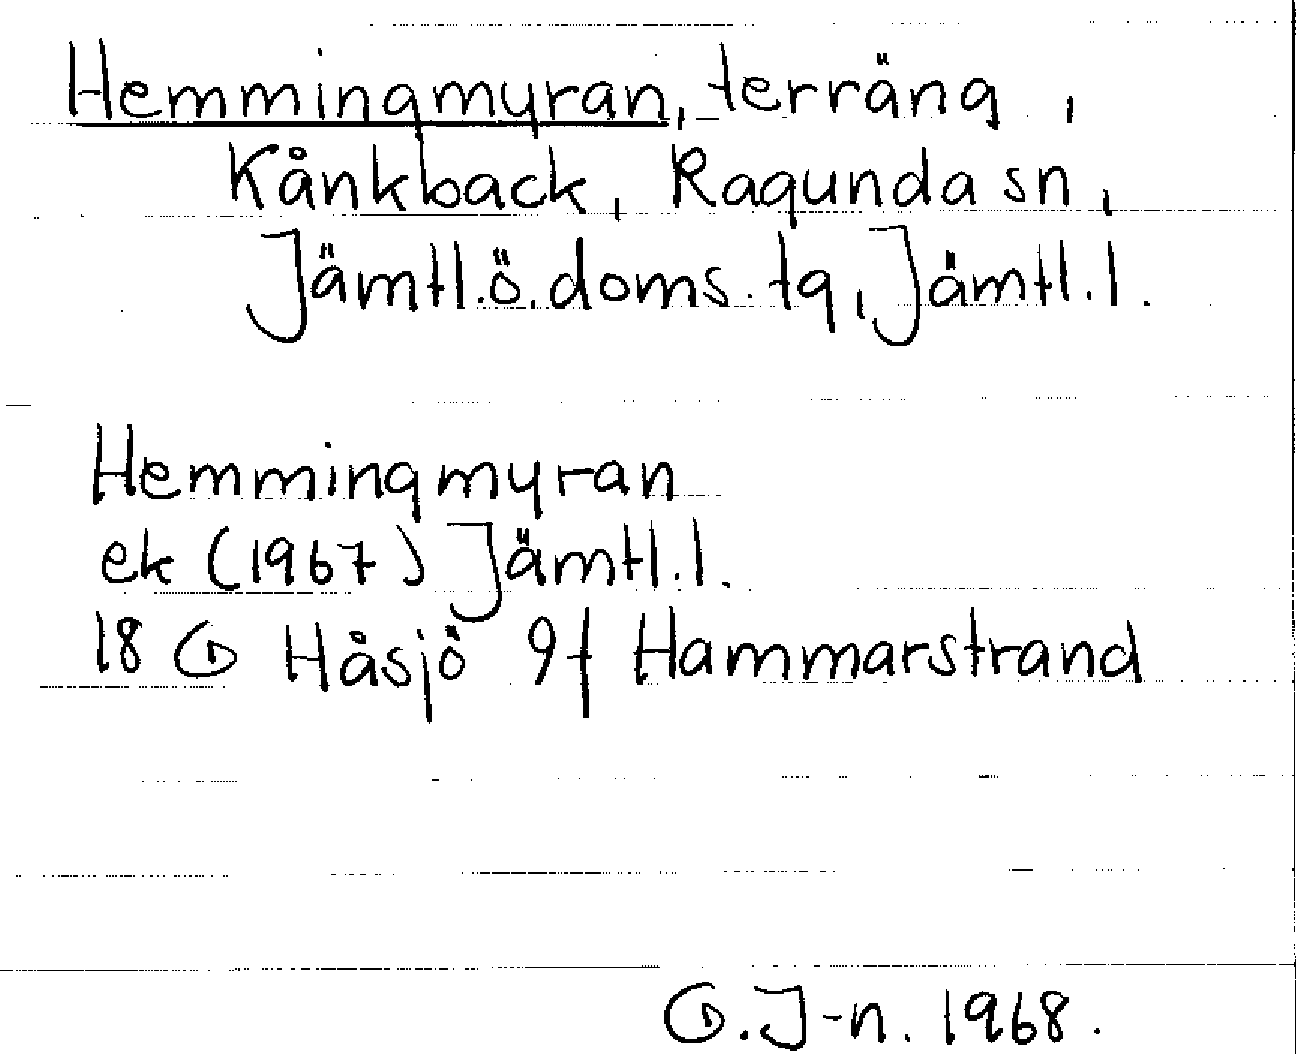 Hemmingmyran, terräng,
Kånkback, Ragunda sn,
Jämtl.ö.doms.tg, Jämtl.l.
Hemmingmyran
ek (1967) Jämtl.l.
18 G Håsjö 9f Hammarstrand
G.J-n. 1968.